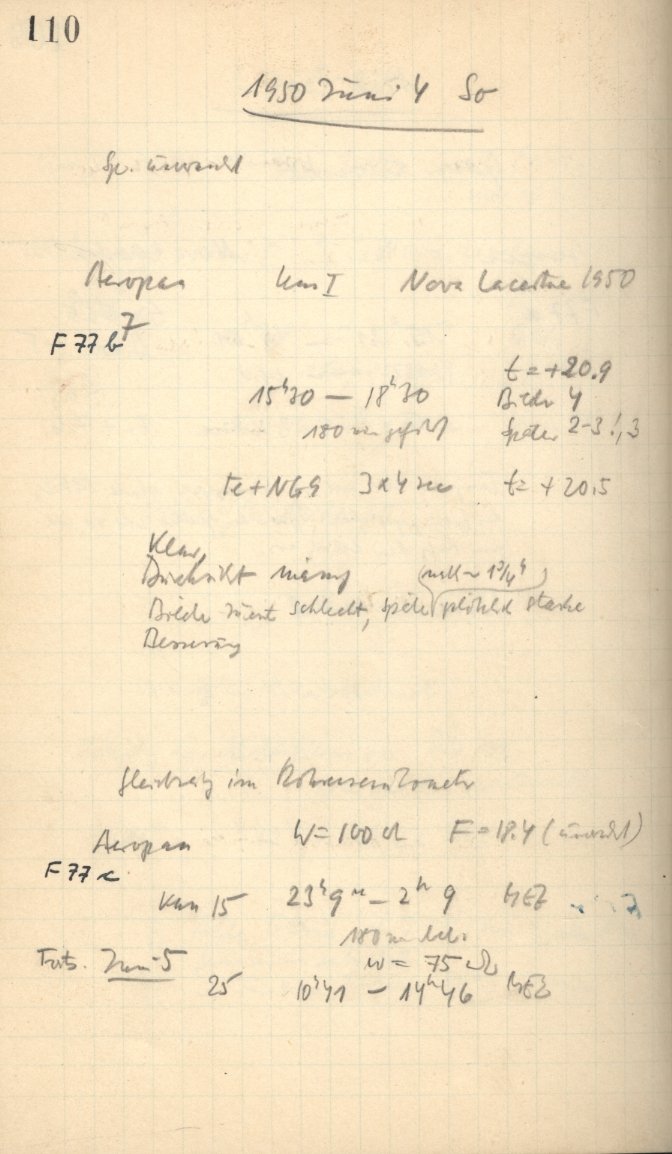 110
1950 Juni 4 So
Sp. unverändert
Aeropan Kas I Nova Lacertae 1950
F 77 b 7
t = +20.9
15h30 — 18h30 Bilder 4
180 min geführt Später 2-3!, 3
Fe+NGG 3x4 sec t = +20.5
Klar,
Durchsicht mässig (nach ~ 1 3/4 h)
Bilder zuerst schlecht, später plötzlich starke
Besserung
gleichzeitig im Röhrensensitometer
Aeropan W = 100 Ω F = 18.4 (unverändert)
F 77 c
Kas 15 23h9m — 2h 9 MEZ
180 m
Forts. Juni 5 W = 75 Ω
25 10h41 — 14h46 MEZ